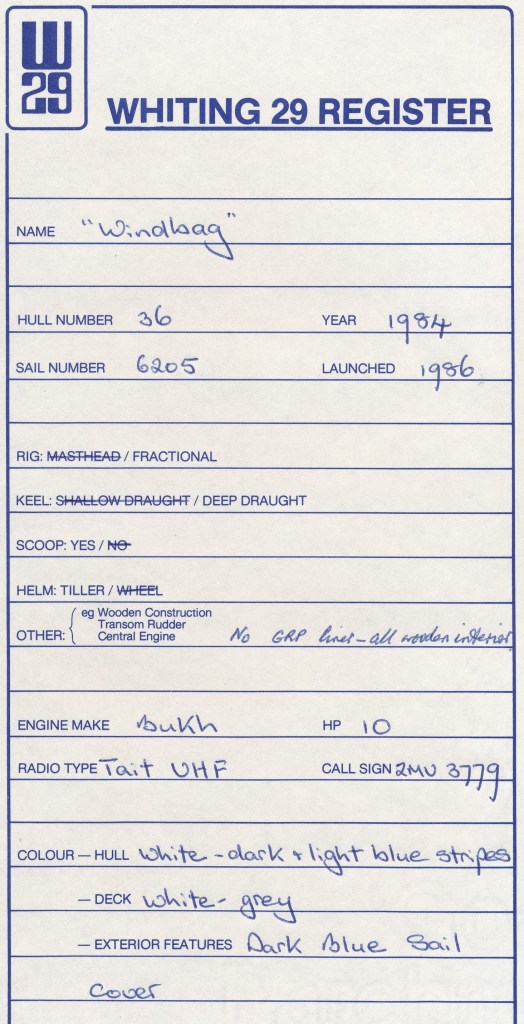 W
29
WHITING 29 REGISTER
NAME "Windbag"
HULL NUMBER 36 YEAR 1984
SAIL NUMBER 6205 LAUNCHED 1986
RIG: MASTHEAD / FRACTIONAL
KEEL: SHALLOW DRAUGHT / DEEP DRAUGHT
SCOOP: YES / NO
HELM: TILLER / WHEEL
eg Wooden Construction
Transom Rudder
OTHER: { Central Engine No GRP liner - all wooden interior
ENGINE MAKE Bukh HP 10
RADIO TYPE Tait UHF CALL SIGN 2MU 3779
COLOUR — HULL White - dark + light blue stripes
— DECK White - grey
— EXTERIOR FEATURES Dark Blue Sail
Cover